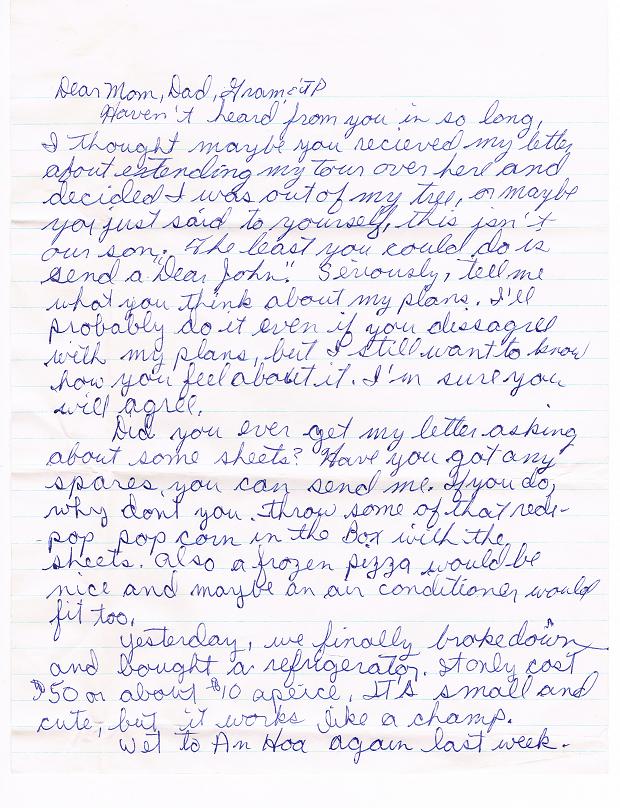 Dear Mom, Dad, Gram, & JP
Haven't heard from you in so long,
I thought maybe you recieved my letter
about extending my tour over here and
decided I was out of my tree, or maybe
you just said to yourself, this isn't
our son. The least you could do is
send a "Dear John". Seriously, tell me
what you think about my plans. I'll
probably do it even if you dissagree
with my plans, but I still want to know
how you feel about it. I'm sure you
will agree.
Did you ever get my letter asking
about some sheets? Have you got any
spares you can send me. If you do,
why dont you throw some of that redi-
pop pop corn in the Box with the
sheets. Also a frozen pizza would be
nice and maybe an air conditioner would
fit too.
Yesterday, we finally broke down
and bought a refrigerator. It only cost
$50 or about $10 apeice. IT'S small and
cute, but it works like a champ.
Wet to An Hoa again last week.